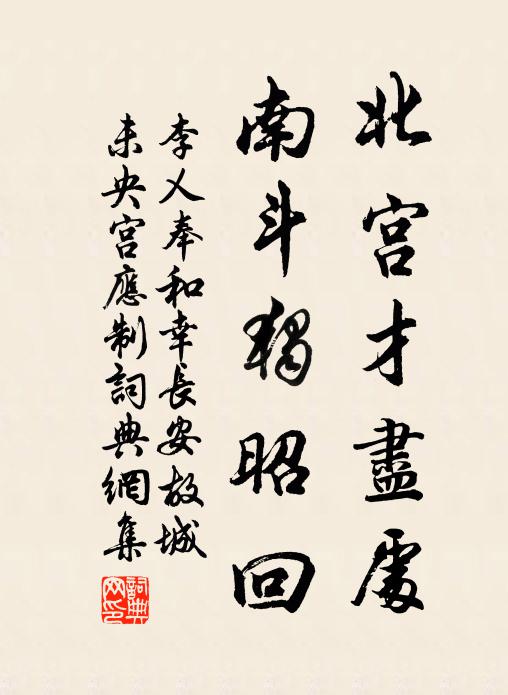 北宫才盡處
南斗獨昭回
李乂奉和幸長安故城
未央宫應制詞典網集
詞典
网印